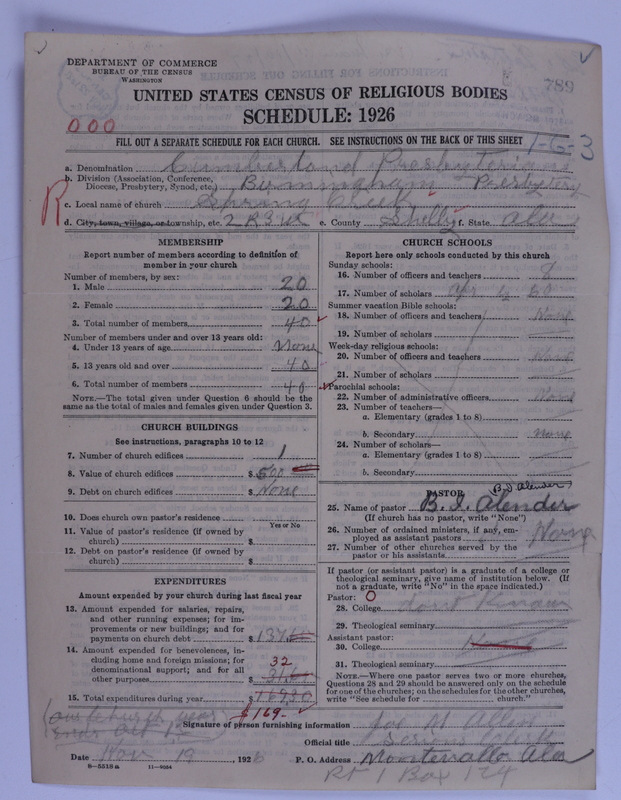 DEPARTMENT OF COMMERCE
BUREAU OF THE CENSUS
WASHINGTON
789
UNITED STATES CENSUS OF RELIGIOUS BODIES
SCHEDULE: 1926
000
FILL OUT A SEPARATE SCHEDULE FOR EACH CHURCH. SEE INSTRUCTIONS ON THE BACK OF THIS SHEET
1-6-3
a. Denomination Cumberland Presbyterian
b. Division (Association, Conference, Diocese, Presbytery, Synod, etc.) Birmingham Presbytery
R
c. Local name of church Spring Creek
d. City, town, village, or township, etc. e. County Shelby f. State Ala
MEMBERSHIP
Report number of members according to definition of
member in your church
Number of members, by sex:
1. Male 20
2. Female 20
3. Total number of members 40
Number of members under and over 13 years old:
4. Under 13 years of age None
5. 13 years old and over 40
6. Total number of members 40
NOTE.—The total given under Question 6 should be the
same as the total of males and females given under Question 3.
CHURCH BUILDINGS
See instructions, paragraphs 10 to 12
7. Number of church edifices 1
8. Value of church edifices $ 500
9. Debt on church edifices $ None
10. Does church own pastor's residence
Yes or No
11. Value of pastor's residence (if owned by
church) $
12. Debt on pastor's residence (if owned by
church) $
EXPENDITURES
Amount expended by your church during last fiscal year
13. Amount expended for salaries, repairs,
and other running expenses; for im-
provements or new buildings; and for
payments on church debt $ 137
14. Amount expended for benevolences, in-
cluding home and foreign missions; for
denominational support; and for all
other purposes $ 32
15. Total expenditures during year $
$169.-
CHURCH SCHOOLS
Report here only schools conducted by this church
Sunday schools:
16. Number of officers and teachers 8
17. Number of scholars 60
Summer vacation Bible schools:
18. Number of officers and teachers None
19. Number of scholars
Week-day religious schools:
20. Number of officers and teachers None
21. Number of scholars
Parochial schools:
22. Number of administrative officers None
23. Number of teachers—
a. Elementary (grades 1 to 8)
b. Secondary None
24. Number of scholars—
a. Elementary (grades 1 to 8)
b. Secondary
PASTOR
25. Name of pastor B. I. Alender
(If church has no pastor, write "None")
26. Number of ordained ministers, if any, em-
ployed as assistant pastors None
27. Number of other churches served by the
pastor or his assistants
If pastor (or assistant pastor) is a graduate of a college or
theological seminary, give name of institution below. (If
not a graduate, write "No" in the space indicated.)
Pastor: O
28. College
29. Theological seminary
Assistant pastor:
30. College
31. Theological seminary
NOTE.—Where one pastor serves two or more churches,
Questions 28 and 29 should be answered only on the schedule
for one of the churches; on the schedules for the other churches,
write "See schedule for church."
our church year
Signature of person furnishing information Jos M Allen
Official title
Date Nov 19 1926 P. O. Address Montevallo Ala
8-5518a
Rt 1 Box 124